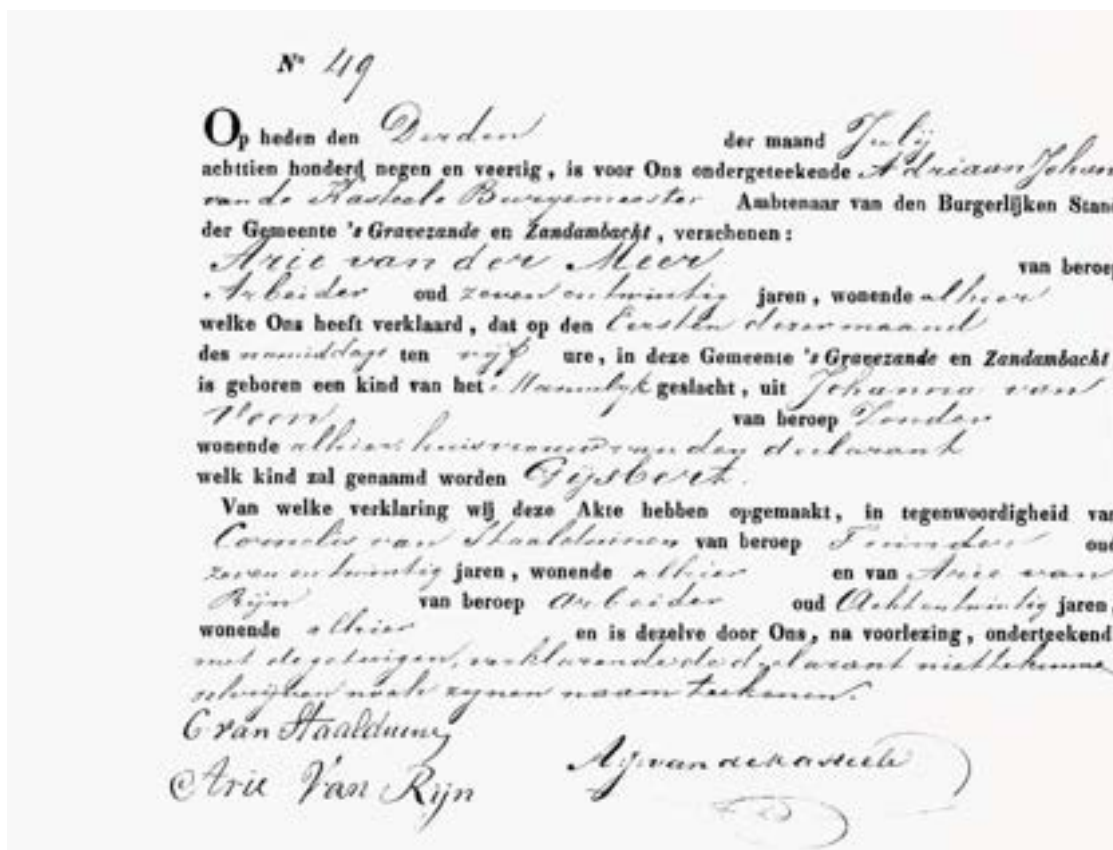 Nº 49
Op heden den Derden der maand Julij
achttien honderd negen en veertig, is voor Ons ondergeteekende Adriaan Johan
van de Kasteele Burgemeester Ambtenaar van den Burgerlijken Stand
der Gemeente 's Gravezande en Zandambacht, verschenen:
Arie van der Meer van beroep
Arbeider oud zeven en twintig jaren, wonende alhier
welke Ons heeft verklaard, dat op den Eersten dezer maand
des namiddags ten vijf ure, in deze Gemeente 's Gravezande en Zandambacht
is geboren een kind van het Mannelyk geslacht, uit Johanna van
Veen van beroep Zonder
wonende alhier, huisvrouw van den declarant
welk kind zal genaamd worden Gijsbert.
Van welke verklaring wij deze Akte hebben opgemaakt, in tegenwoordigheid van
Cornelis van Staalduinen van beroep oud
zeven en twintig jaren, wonende alhier en van Arie van
Rijn van beroep Arbeider oud Achtentwintig jaren,
wonende alhier en is dezelve door Ons, na voorlezing, onderteekend
met de getuigen, verklarende de declarant niet te kunne
schrijven noch zynen naam teekenen.
C van Staalduine
Arie Van Rijn
AJvandekasteele